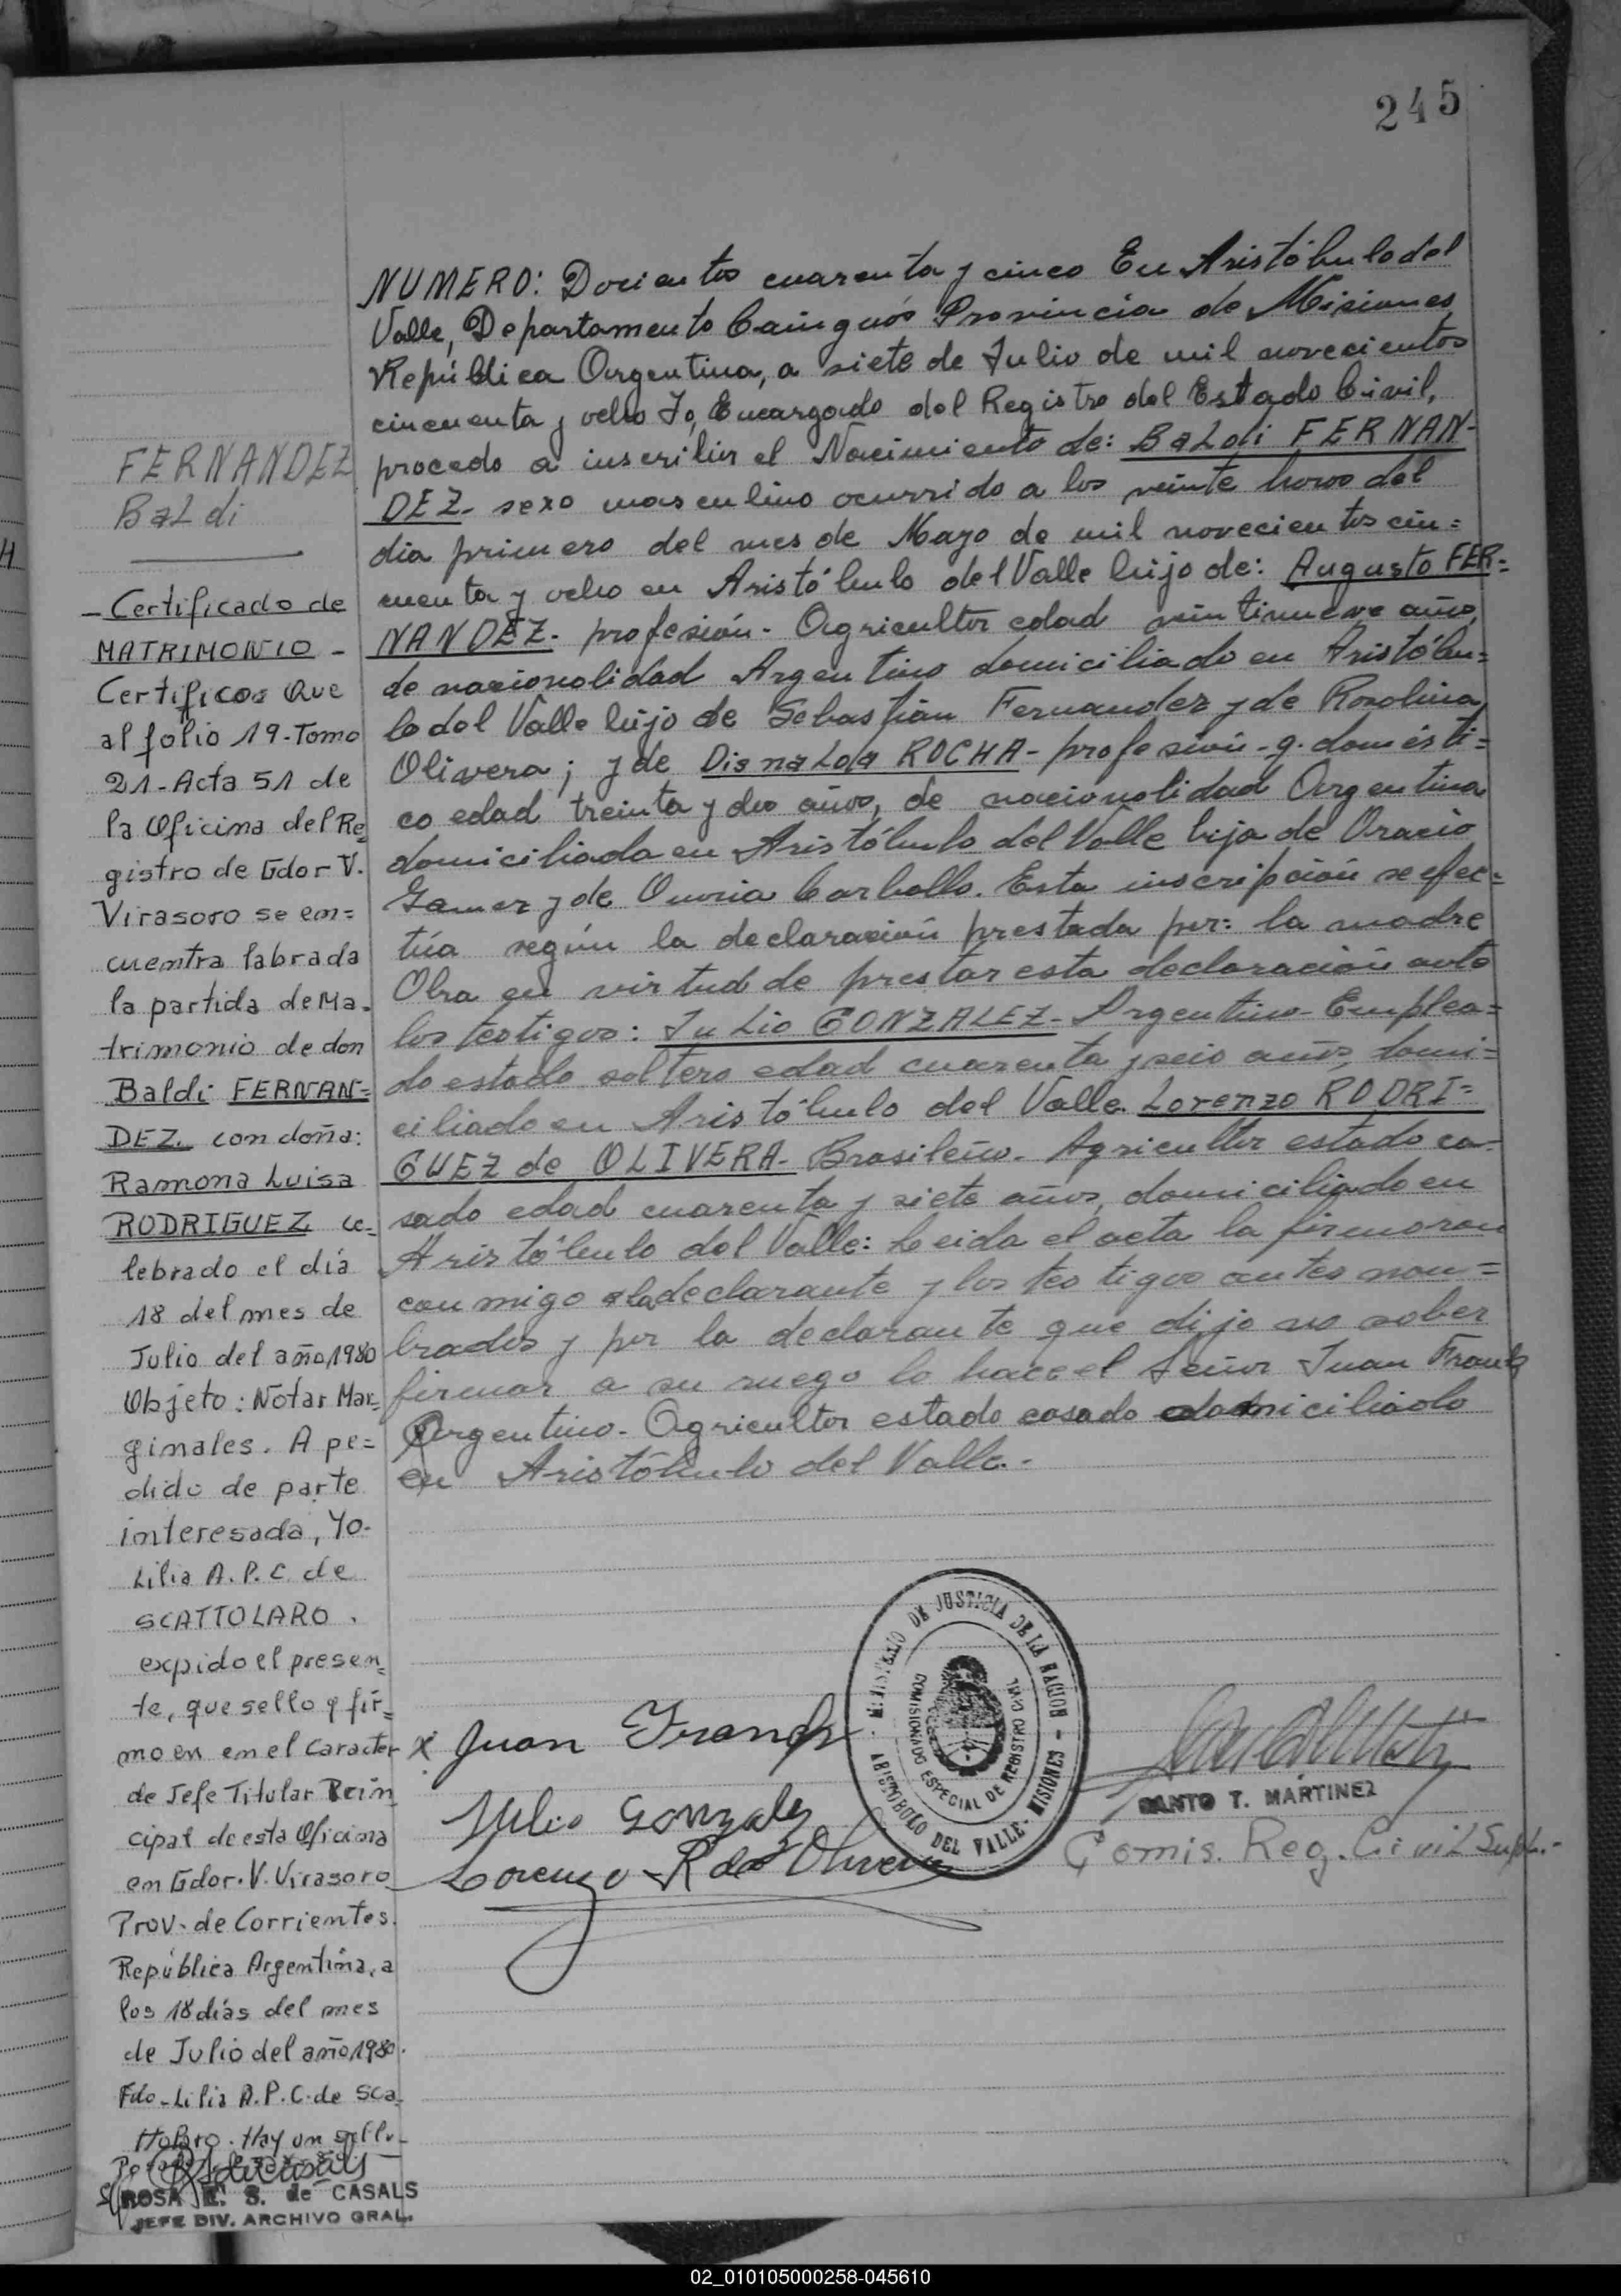 245
NUMERO: Docientos cuarenta y cinco En Aristóbulo del
Valle, Departamento Cainguás Provincia de Misiones
República Argentina, a siete de Julio de mil novecientos
cincuenta y ocho Yo, Encargado del Registro del Estado Civil,
procedo a inscribir el Nacimiento de: BaLdi FERNAN-
DEZ- sexo masculino ocurrido a las veinte horas del
dia primero del mes de Mayo de mil novecientos cin=
cuenta y ocho en Aristóbulo del Valle hijo de: Augusto FER=
NANDEZ- profesión- Agricultor edad veintinueve años,
de nacionalidad Argentino domiciliado en Aristóbu=
lo del Valle hijo de Sebastián Fernandez y de Rosolina
Olivera; y de DisnaLda ROCHA- profesión- q. domésti=
co edad treinta y dos años, de nacionalidad Argentina
domiciliada en Aristóbulo del Valle hija de Oracio
Gamez y de Carballo. Esta inscripción se efec=
túa según la declaración prestada por: la madre
Obra en virtud de prestar esta declaración ante
los testigos: JuLio GONZALEZ- Argentino- Emplea=
do estado soltero edad cuarenta y seis años, domi=
ciliado en Aristóbulo del Valle. Lorenzo RODRI=
GUEZ de OLIVERA- Brasileño- Agricultor estado ca-
sado edad cuarenta y siete años, domiciliado en
Aristóbulo del Valle: Leida el acta la firmaron
conmigo la declarante y los testigos antes nom=
brados y por la declarante que dijo no saber
firmar a su ruego lo hace el Señor Juan Frank
Argentino- Agricultor estado casado domiciliado
en Aristóbulo del Valle.-
FERNANDEZ
BaLdi
- Certificado de
MATRIMONIO -
Certifico: Que
al folio 19-Tomo
21-Acta 51 de
la Oficina del Re
gistro de Gdor V.
Virasoro se en=
cuentra labrada
la partida de Ma-
trimonio de don
Baldi FERNAN=
DEZ. con doña:
Ramona Luisa
RODRIGUEZ ce-
lebrado el día
18 del mes de
Julio del año 1980
Objeto: Notar Mar-
ginales. A pe=
dido de parte
interesada, Yo-
Lilia A.P.C. de
SCATTOLARO.
expido el presen=
te, que sello y fir=
mo en en el caracter
de Jefe Titular Prin
cipal de esta Oficina
en Gdor. V. Virasoro
Prov. de Corrientes.
República Argentina, a
los 18 días del mes
de Julio del año 1980.
Fdo-Lilia A.P.C. de Sca-
ttolaro. Hay un sello-
ROSA E. S. de CASALS
JEFE DIV. ARCHIVO GRAL.
x Juan Frank
Julio Gonzalez
Lorenzo R de Olivera
MINISTERIO DE JUSTICIA DE LA NACION - MISIONES - ARISTOBOLO DEL VALLE
COMISIONADO ESPECIAL DE REGISTRO CIVIL
SANTO T. MARTINEZ
Comis. Reg. Civil Supl.-
02_010105000258-045610